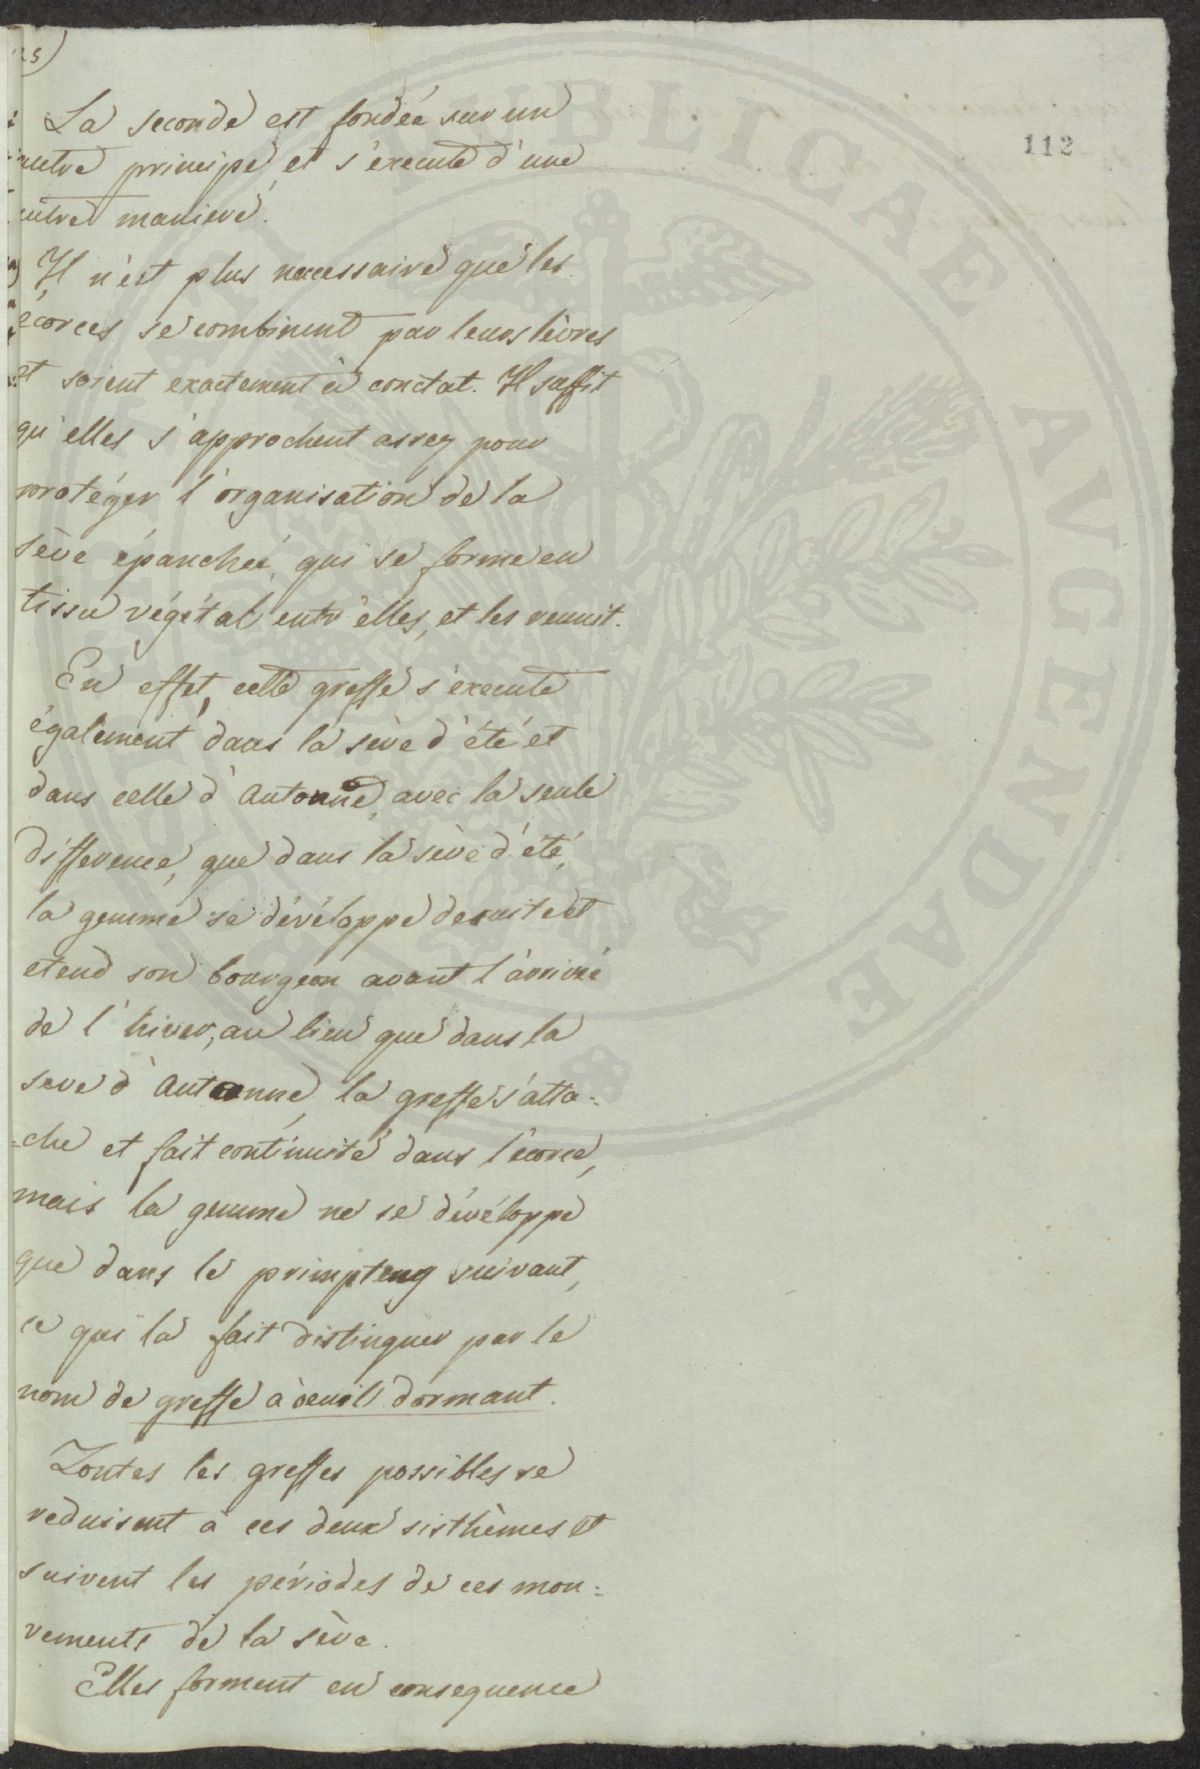 25)
112
La seconde est fondée sur un
autre principe et s'execute d'une
autre maniere.
Il n'est plus necessaire que les
écorces se combinent par leurs lèvres
et soient exactement à conctat. Il suffit
qu'elles s'approchent assez pour
protéger l'organisation de la
sève épanchée, qui se forme en
tissu végétal entr'elles, et les reunit.
En effet, cette greffe s'execute
également dans la sève d'été et
dans celle d'Automne, avec la seule
difference, que dans la sève d'été,
la gemme se dévéloppe de suite et
etend son bourgeon avant l'arrivée
de l'hiver, au lieu que dans la
seve d'Automne, la greffe s'atta=
=che et fait continuité dans l'écorce,
mais la gemme ne se dévéloppe
que dans le primptems suivant,
ce qui la fait distinguer par le
nom de greffe à oeuil dormant.
Toutes les greffes possibles se
reduisent à ces deux sisthèmes et
suivent les périodes de ces mou=
vements de la sève.
Elles forment en consequence
PUBLICAE AVGENDAE